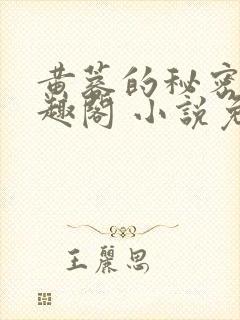 黄墓的秘密
趣阁 小说免
王丽思